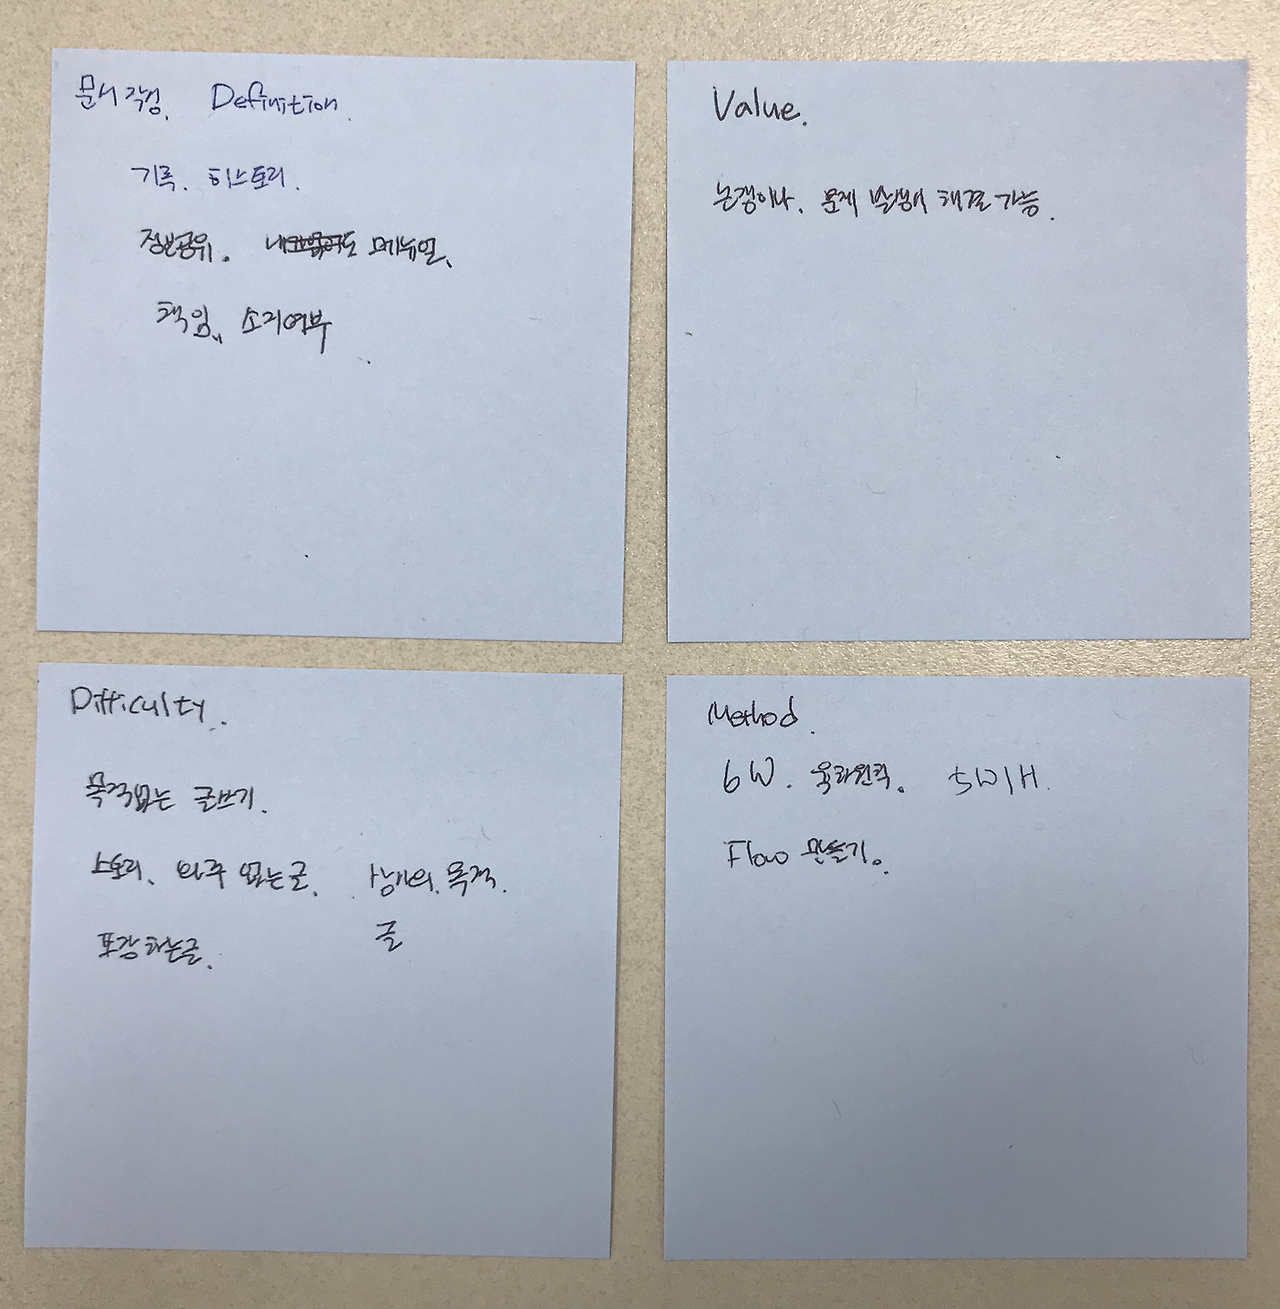 문서작성. Definition.
기록. 히스토리.
정보공유. 메뉴얼.
책임, 소지여부
Value.
논쟁이나. 문제 발생시 해결 가능.
Difficulty.
목적없는 글쓰기.
스토리. 와꾸 없는글. 상대의 목적.
글
포장하는글.
Method.
6W. 육하원칙. 5W1H.
Flow 만들기.